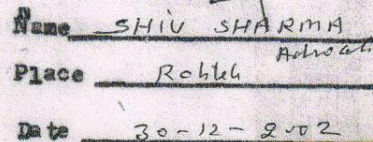 Name SHIV SHARMA
Advocate
Place Rohtak
Date 30-12-2002